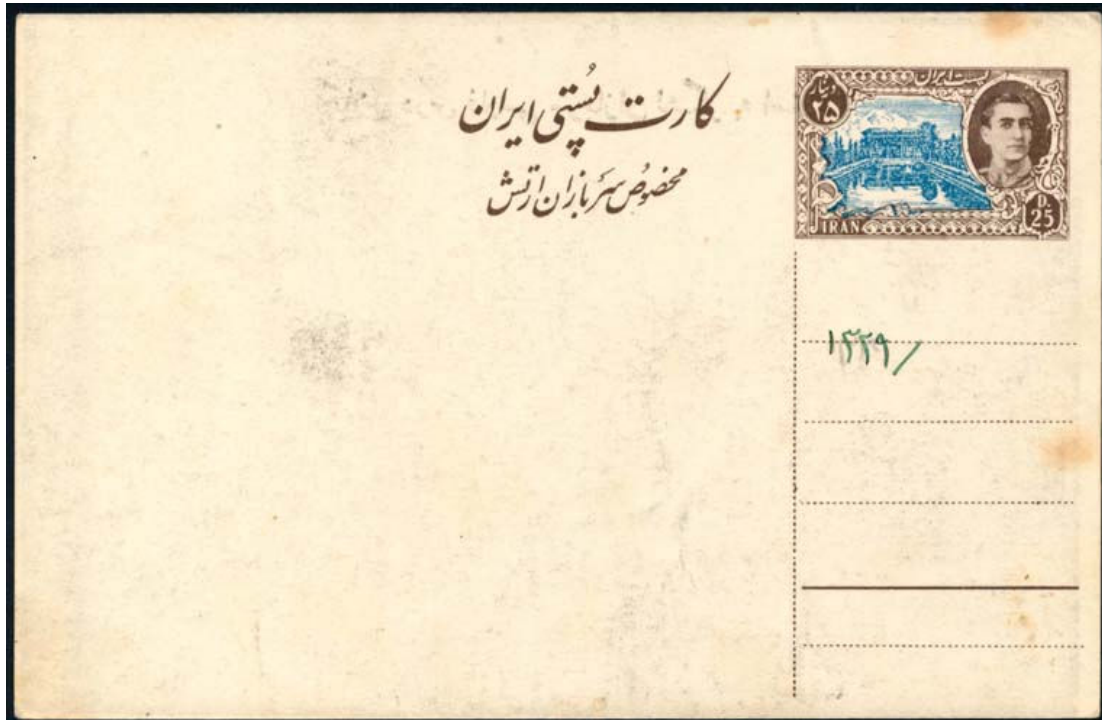 کارت پُستی ایران
مخصوص سربازان ارتش
پست ایران
۲۵ دینار
D. 25
IRAN
۱۳۲۹/